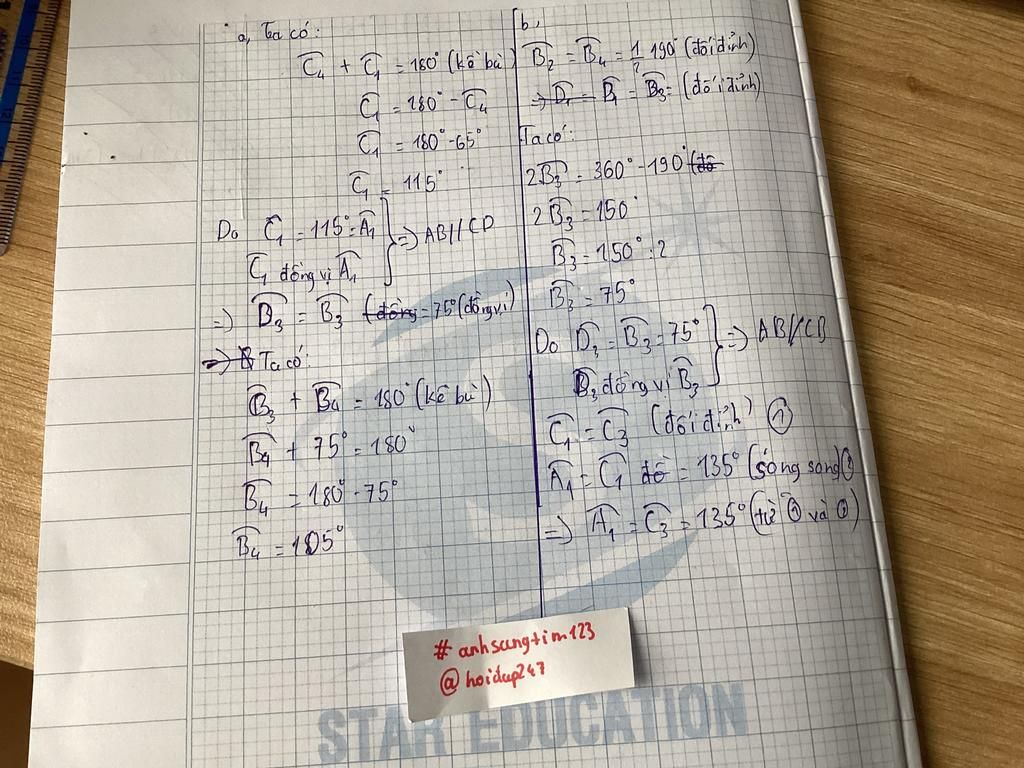 a, Ta có:
Ĉ₄ + Ĉ₁ = 180° (kề bù)
Ĉ₁ = 180° - Ĉ₄
Ĉ₁ = 180° - 65°
Ĉ₁ = 115°
Do Ĉ₁ = 115° = Â₁
Ĉ₁ đồng vị Â₁
=> AB // CD
=> D̂₃ = B̂₃ (đồng = 75° (đồng vị)
=> Ta có:
B̂₃ + B̂₄ = 180° (kề bù)
B̂₄ + 75° = 180°
B̂₄ = 180° - 75°
B̂₄ = 105°
b,
B̂₂ = B̂₄ = 1/2 190° (đối đỉnh)
=> D̂₁ = B̂₁ = B̂₃ = (đối đỉnh)
Ta có:
2B̂₃ = 360° - 190° (đô
2B̂₃ = 150°
B̂₃ = 150° : 2
B̂₃ = 75°
Do D̂₃ = B̂₃ = 75°
D̂₃ đồng vị B̂₃
=> AB // CD
Ĉ₁ = Ĉ₃ (đối đỉnh) ①
Â₁ = Ĉ₁ đố = 135° (sóng song) ②
=> Â₁ = Ĉ₃ = 135° (từ ① và ②)
# anhsangtim123
@ hoidap247
STAR EDUCATION